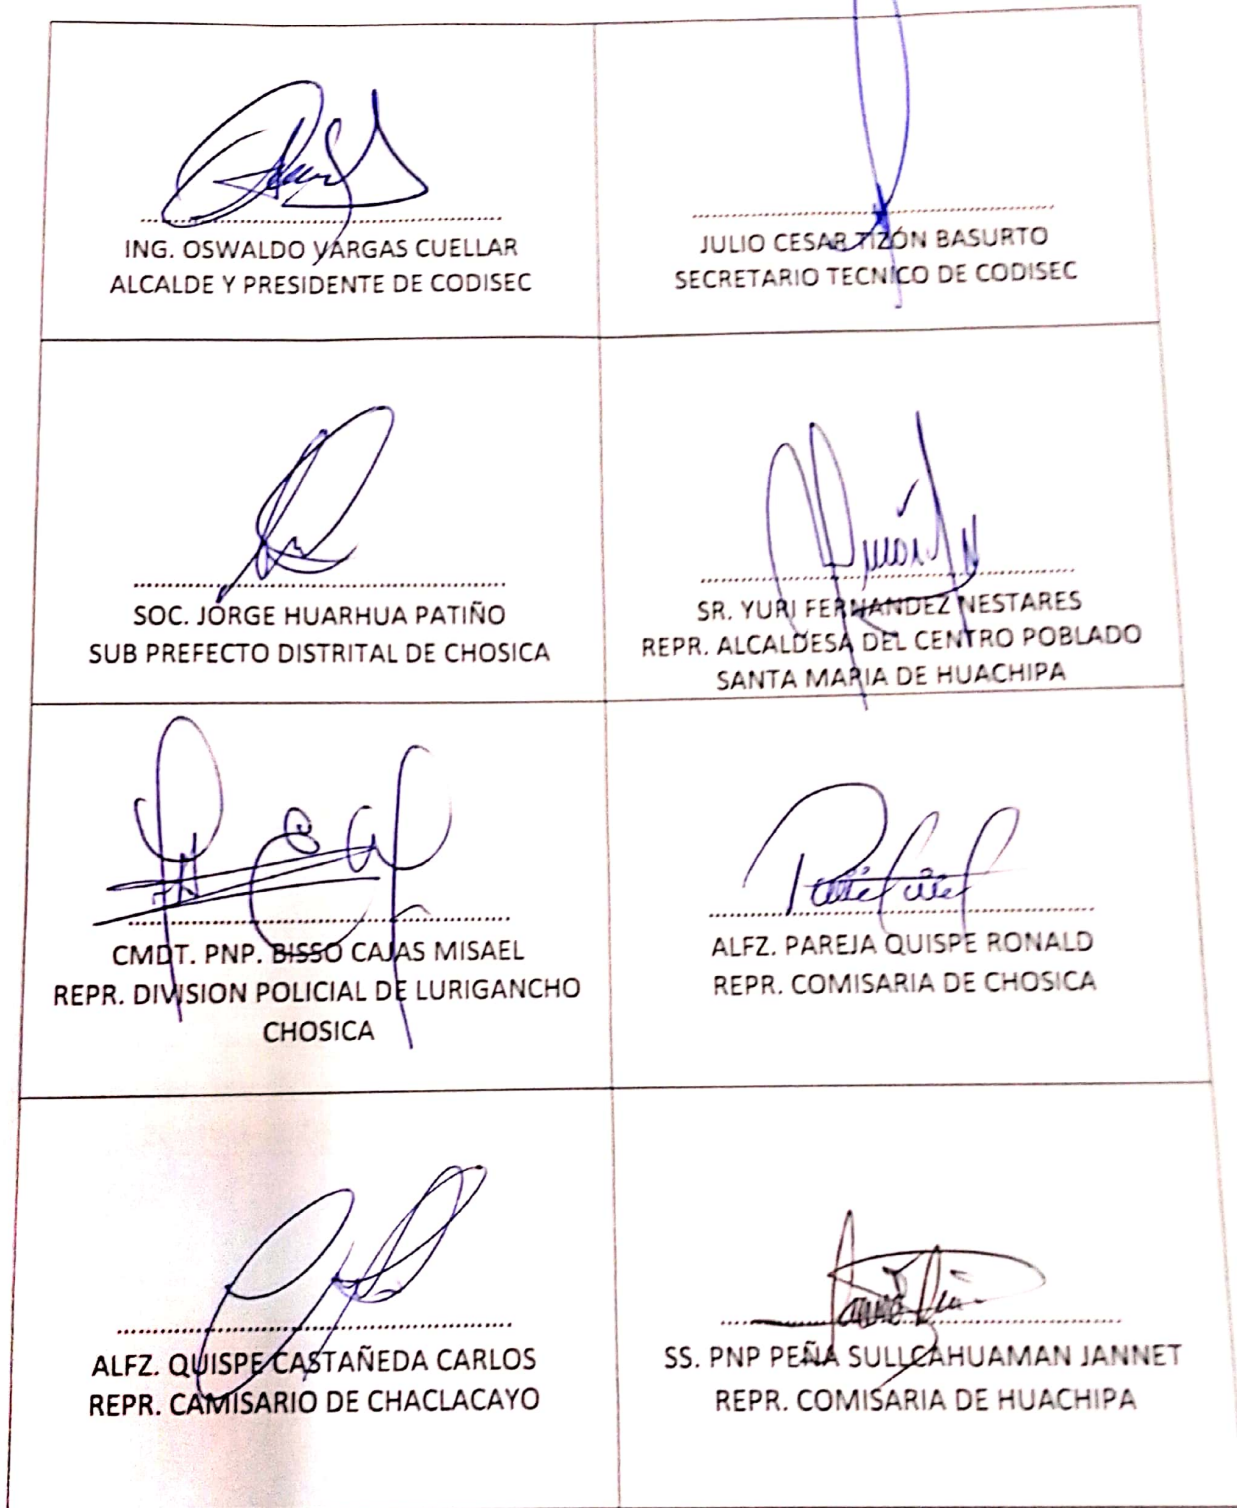 ING. OSWALDO VARGAS CUELLAR
ALCALDE Y PRESIDENTE DE CODISEC
JULIO CESAR TIZÓN BASURTO
SECRETARIO TECNICO DE CODISEC
SOC. JORGE HUARHUA PATIÑO
SUB PREFECTO DISTRITAL DE CHOSICA
SR. YURI FERNANDEZ NESTARES
REPR. ALCALDESA DEL CENTRO POBLADO
SANTA MARIA DE HUACHIPA
CMDT. PNP. BISSO CAJAS MISAEL
REPR. DIVISION POLICIAL DE LURIGANCHO
CHOSICA
ALFZ. PAREJA QUISPE RONALD
REPR. COMISARIA DE CHOSICA
ALFZ. QUISPE CASTAÑEDA CARLOS
REPR. CAMISARIO DE CHACLACAYO
SS. PNP PEÑA SULLCAHUAMAN JANNET
REPR. COMISARIA DE HUACHIPA